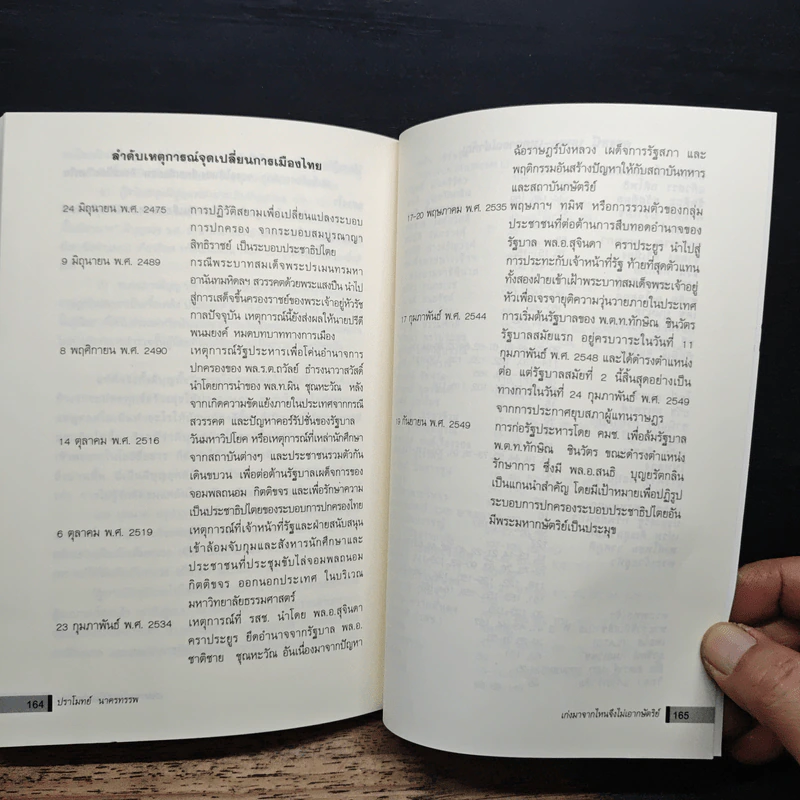 ลำดับเหตุการณ์จุดเปลี่ยนการเมืองไทย
24 มิถุนายน พ.ศ. 2475 การปฏิวัติสยามเพื่อเปลี่ยนแปลงระบอบ
การปกครอง จากระบอบสมบูรณาญา
สิทธิราชย์ เป็นระบอบประชาธิปไตย
9 มิถุนายน พ.ศ. 2489 กรณีพระบาทสมเด็จพระปรเมนทรมหา
อานันทมหิดลฯ สวรรคตด้วยพระแสงปืน นำไป
สู่การเสด็จขึ้นครองราชย์ของพระเจ้าอยู่หัวรัช
กาลปัจจุบัน เหตุการณ์นี้ยังส่งผลให้นายปรีดี
พนมยงค์ หมดบทบาททางการเมือง
8 พฤศจิกายน พ.ศ. 2490 เหตุการณ์รัฐประหารเพื่อโค่นอำนาจการ
ปกครองของ พล.ร.ต.ถวัลย์ ธำรงนาวาสวัสดิ์
นำโดยการนำของ พล.ท.ผิน ชุณหะวัณ หลัง
จากเกิดความขัดแย้งภายในประเทศจากกรณี
สวรรคต และปัญหาคอร์รัปชั่นของรัฐบาล
14 ตุลาคม พ.ศ. 2516 วันมหาวิปโยค หรือเหตุการณ์ที่เหล่านักศึกษา
จากสถาบันต่างๆ และประชาชนรวมตัวกัน
เดินขบวน เพื่อต่อต้านรัฐบาลเผด็จการของ
จอมพลถนอม กิตติขจร และเพื่อรักษาความ
เป็นประชาธิปไตยของระบอบการปกครองไทย
6 ตุลาคม พ.ศ. 2519 เหตุการณ์ที่เจ้าหน้าที่รัฐและฝ่ายสนับสนุน
เข้าล้อมจับกุมและสังหารนักศึกษาและ
ประชาชนที่ประชุมขับไล่จอมพลถนอม
กิตติขจร ออกนอกประเทศ ในบริเวณ
มหาวิทยาลัยธรรมศาสตร์
23 กุมภาพันธ์ พ.ศ. 2534 เหตุการณ์ที่ รสช. นำโดย พล.อ.สุจินดา
คราประยูร ยึดอำนาจจากรัฐบาล พล.อ.
ชาติชาย ชุณหะวัณ อันเนื่องมาจากปัญหา
164 ปราโมทย์ นาครทรรพ
ฉ้อราษฎร์บังหลวง เผด็จการรัฐสภา และ
พฤติกรรมอันสร้างปัญหาให้กับสถาบันทหาร
และสถาบันกษัตริย์
17-20 พฤษภาคม พ.ศ. 2535 พฤษภาฯ ทมิฬ หรือการรวมตัวของกลุ่ม
ประชาชนที่ต่อต้านการสืบทอดอำนาจของ
รัฐบาล พล.อ.สุจินดา คราประยูร นำไปสู่
การปะทะกับเจ้าหน้าที่รัฐ ท้ายที่สุดตัวแทน
ทั้งสองฝ่ายเข้าเฝ้าพระบาทสมเด็จพระเจ้าอยู่
หัวเพื่อเจรจายุติความวุ่นวายภายในประเทศ
17 กุมภาพันธ์ พ.ศ. 2544 การเริ่มต้นรัฐบาลของ พ.ต.ท.ทักษิณ ชินวัตร
รัฐบาลสมัยแรก อยู่ครบวาระในวันที่ 11
กุมภาพันธ์ พ.ศ. 2548 และได้ดำรงตำแหน่ง
ต่อ แต่รัฐบาลสมัยที่ 2 นี้สิ้นสุดอย่างเป็น
ทางการในวันที่ 24 กุมภาพันธ์ พ.ศ. 2549
จากการประกาศยุบสภาผู้แทนราษฎร
19 กันยายน พ.ศ. 2549 การก่อรัฐประหารโดย คมช. เพื่อล้มรัฐบาล
พ.ต.ท.ทักษิณ ชินวัตร ขณะดำรงตำแหน่ง
รักษาการ ซึ่งมี พล.อ.สนธิ บุญยรัตกลิน
เป็นแกนนำสำคัญ โดยมีเป้าหมายเพื่อปฏิรูป
ระบอบการปกครองระบอบประชาธิปไตยอัน
มีพระมหากษัตริย์เป็นประมุข
เก่งมาจากไหนจึงไม่เอากษัตริย์ 165